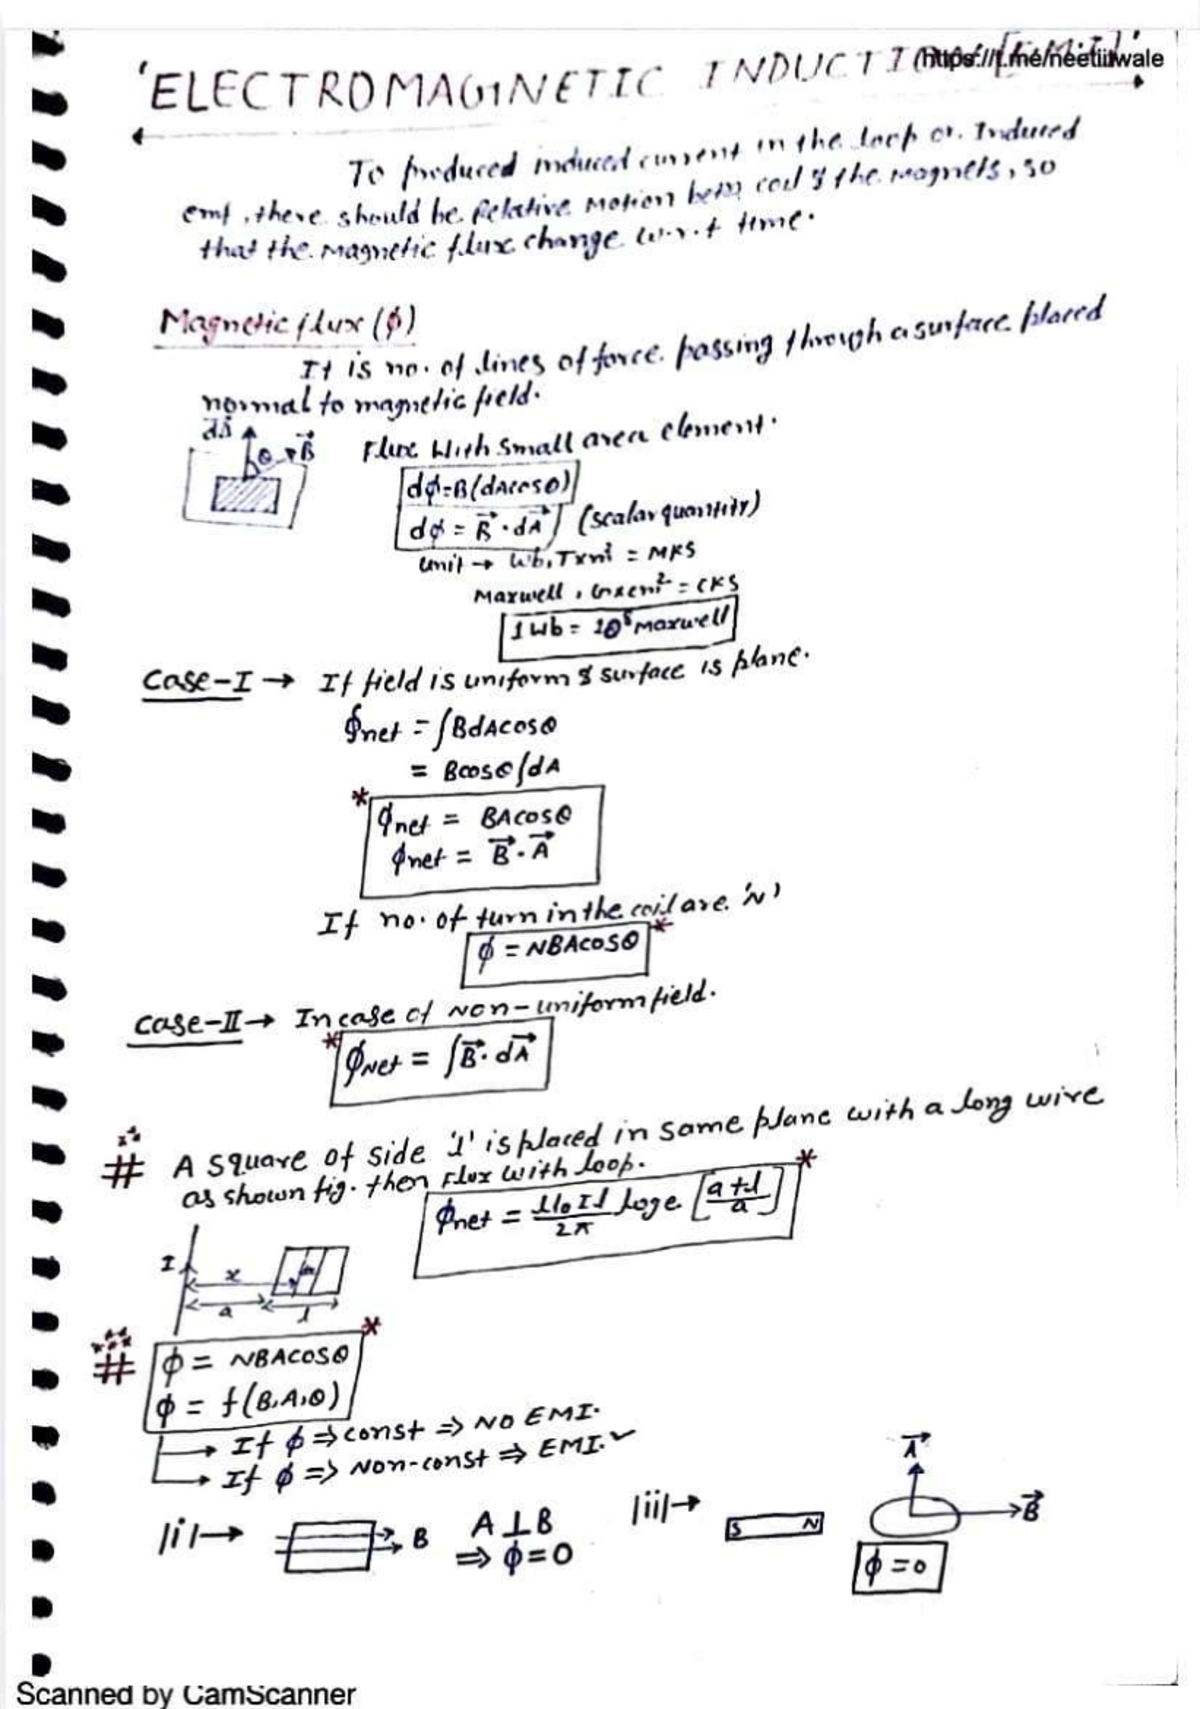 'ELECTROMAGNETIC INDUCTION [EMI]'
https://t.me/neetiitwale
To produced induced current in the loop or. Induced
emf, there should be Relative Motion betn coil & the magnets, so
that the magnetic flux change w.r.t time.
Magnetic flux (ϕ)
It is no. of lines of force passing through a surface placed
normal to magnetic field.
dA⃗
θ B⃗
Flux With small area element.
dϕ=B(dAcosθ)
dϕ = B⃗·dA⃗ (scalar quantity)
unit → Wb, Txm² = MKS
Maxwell, Gxcm² = CKS
1Wb = 10⁸ Maxwell
Case-I → If field is uniform & surface is plane.
ϕnet = ∫BdAcosθ
= Bcosθ∫dA
* ϕnet = BAcosθ
ϕnet = B⃗·A⃗
If no. of turn in the coil are 'N'
ϕ = NBAcosθ *
Case-II → In case of Non-uniform field.
* ϕNet = ∫B⃗·dA⃗
# A square of side 'l' is placed in same plane with a long wire
as shown fig. then Flux with loop.
ϕnet = μ₀Il/2π loge [a+l/a] *
I x a l
# ϕ = NBAcosθ *
ϕ = f(B,A,θ)
→ If ϕ ⇒ const ⇒ NO EMI.
→ If ϕ ⇒ Non-const ⇒ EMI. ✓
|i|→ B A⊥B
⇒ ϕ=0
|ii|→ S N A⃗ B⃗
ϕ=0
Scanned by CamScanner